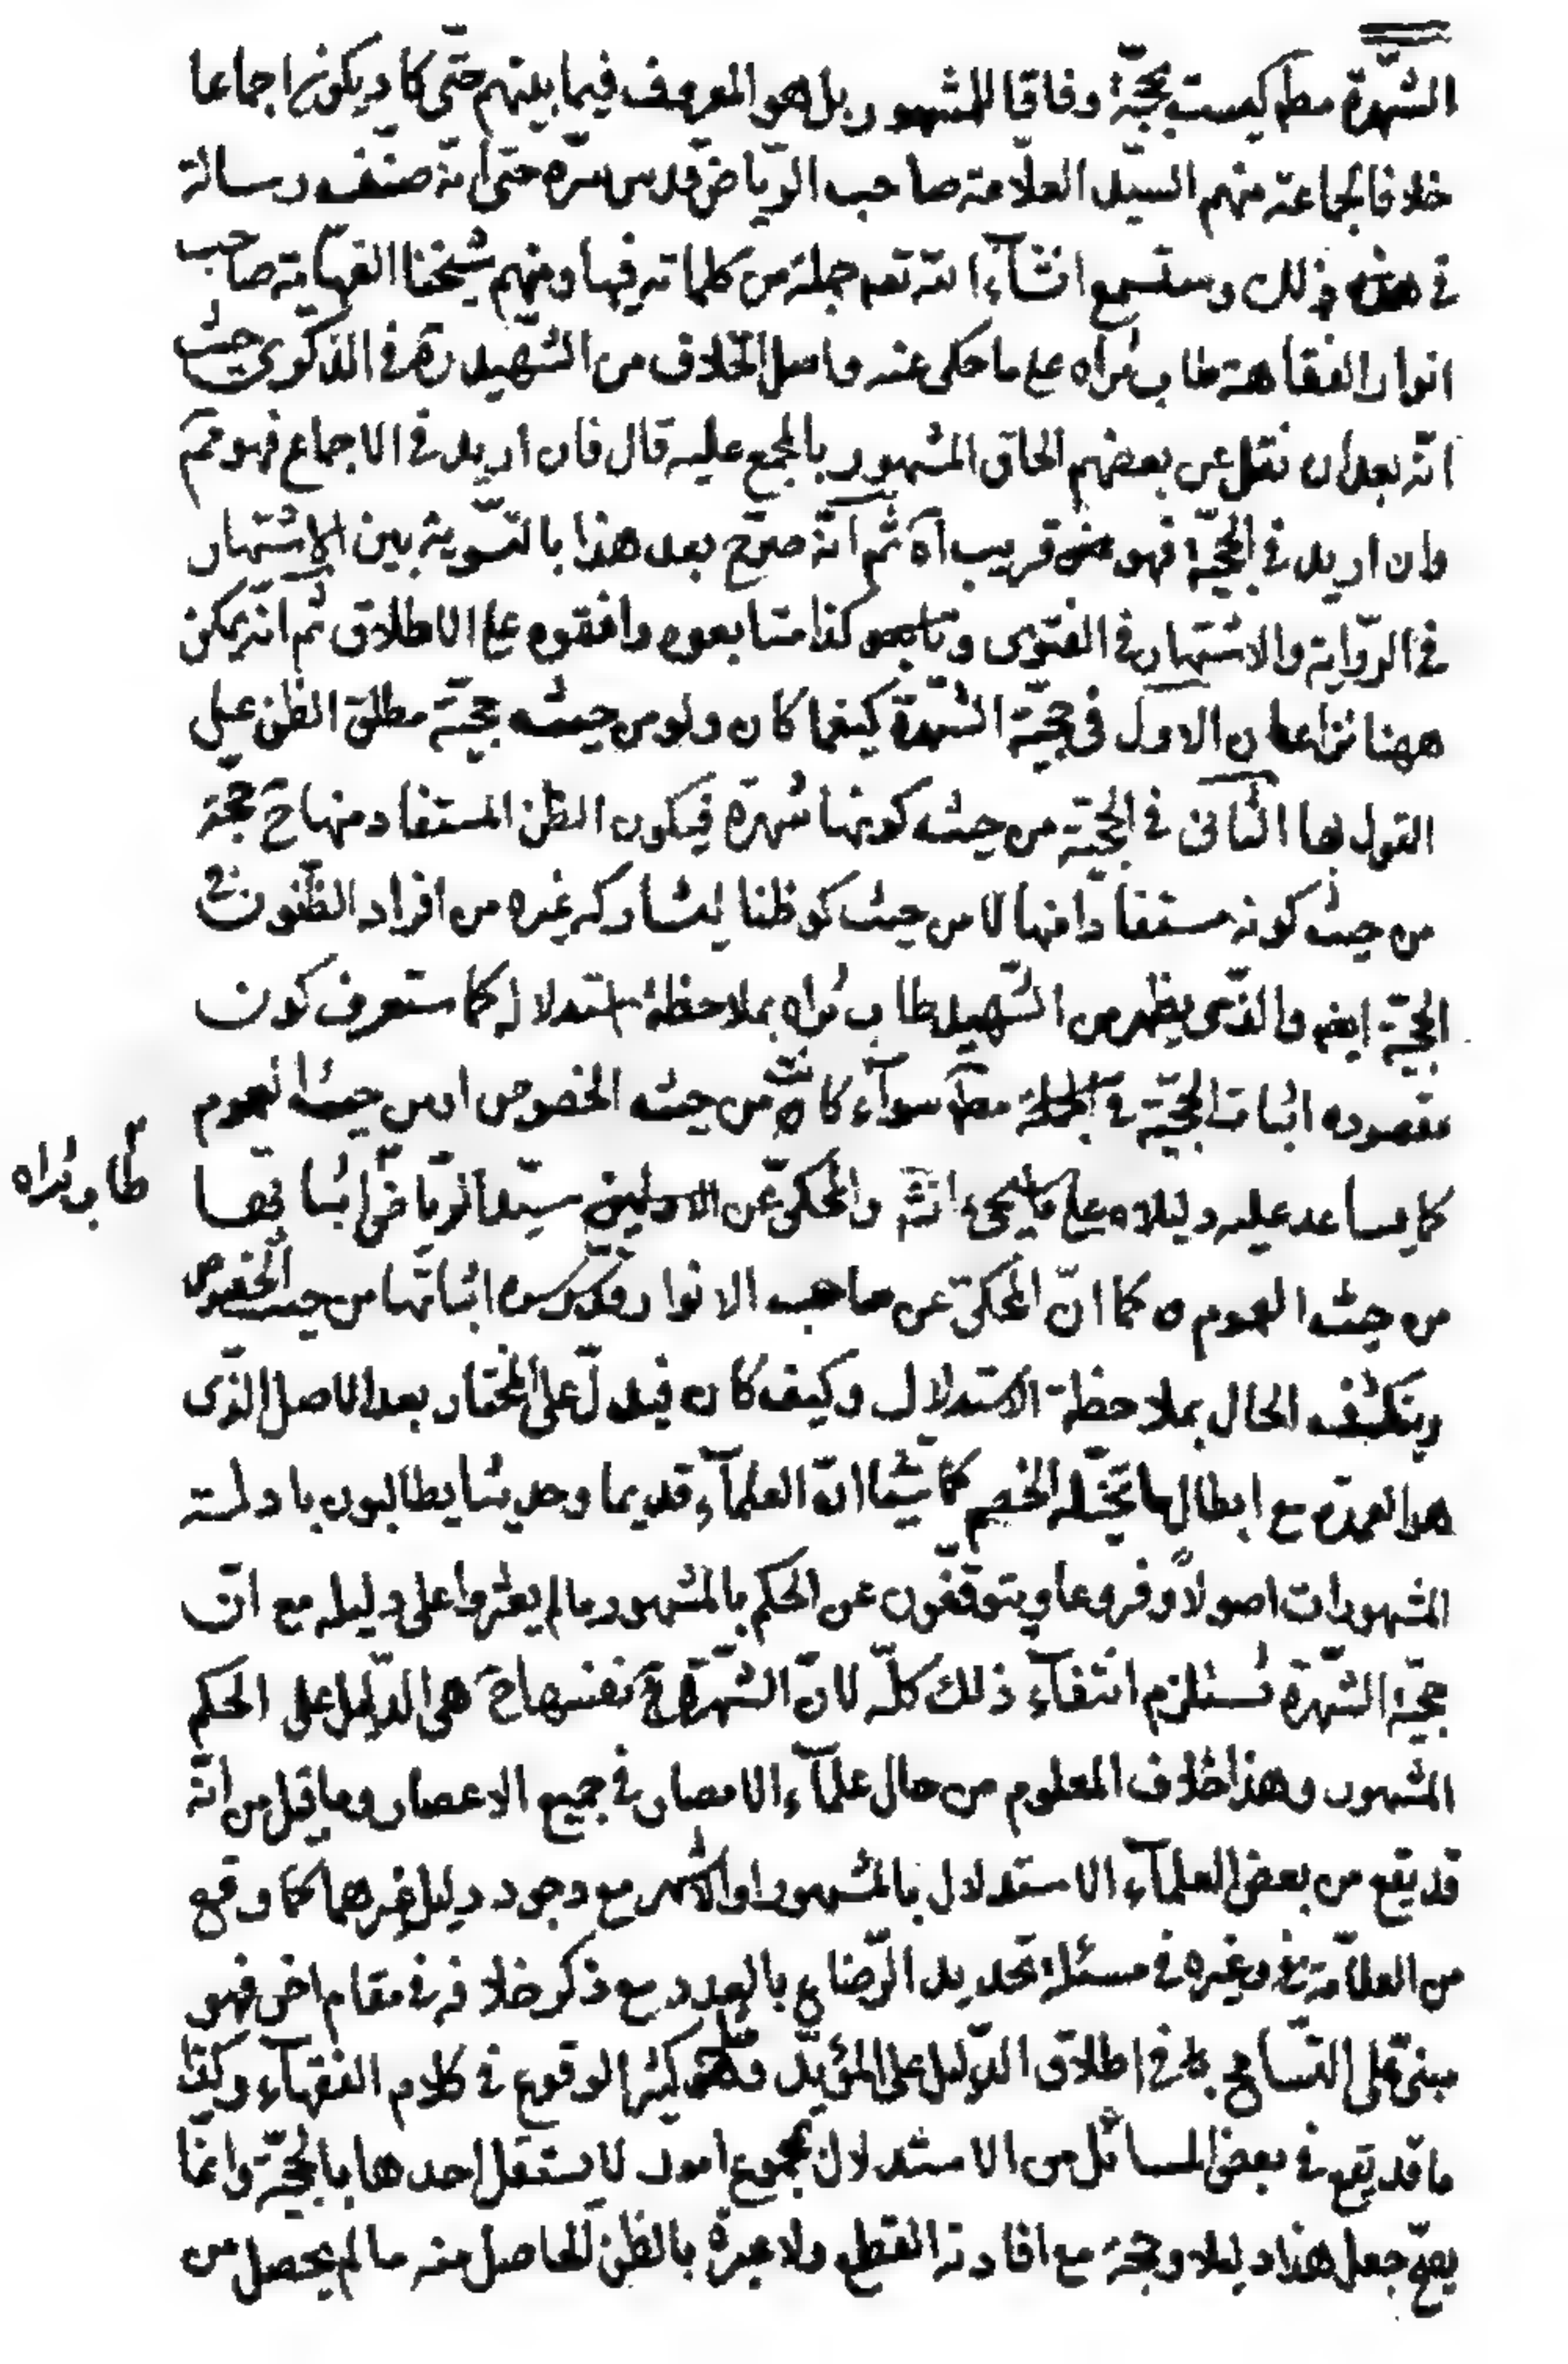 الشّهرة مطم ليست بحجّة وفاقا للمشهور بل هو المعروف فيما بينهم حتّى كاد يكون اجماعا
خلافا لجماعة منهم السيّد العلّامة صاحب الرّياض قدس سرّه حتى انّه صنّف رسالة
في ذلك وستسمع انشآء الله تعم جملة من كلماته فيها ومنهم شيخنا الفهّامة صاحب
انوار الفقاهة طاب ثراه على ما حكى عنه واصل الخلاف من الشّهيد ره في الذكرى حيث
انّه بعد ان نقل عن بعضهم الحاق المشهور بالمجمع عليه قال فان اريد في الاجماع فهو مم
وان اريد في الحجّيّة فهو قريب آه ثم انّه صرّح بعد هذا بالتسوية بين الاشتهار
في الرّواية والاشتهار في الفتوى وتابعوه كذا متابعوه وافقوه على الاطلاق ثم انّه يمكن
ههنا نزاعان الاول في حجيّة الشّهرة كيفما كان ولو من حيث حجيّة مطلق الظن على
القول بها الثّانى في الحجيّة من حيث كونها شهرة فيكون الظن المستفاد منها ح حجّة
من حيث كونه مستفادا منها لا من حيث كو ظنا ليشاركه غيره من افراد الظّنون في
الحجيّة ايضم والذى يظهر من الشّهيد طاب ثراه بملاحظة استدلاله كما ستعرف كون
مقصوده اثبات الحجّيّة في الجملة مطم سوآء كانت من حيث الخصوص او من حيث العموم
كما يساعد عليه دليلاه على ما سيجىء انشم والمحكىّ عن سيّد الرّياض اثباتها
طاب ثراه
من حيث العموم كما انّ المحكىّ عن صاحب الانوار قدّس سره اثباتها من حيث الخصوص
وينكشف الحال بملاحظة الاستدلال وكيف كان فيدلّ على المختار بعد الاصل الذّى
هو العمدة مع ابطال ما تخيّله الخصم انّ العلمآء قديما وحديثا يطالبون بادلة
المشهورات اصولاً وفروعا ويتوقّفون عن الحكم بالمشهور ما لم يعثروا على دليله مع انّ
حجيّة الشّهرة تستلزم انتفآء ذلك كلّه لانّ الشّهرة نفسها ح هى الدّليل على الحكم
المشهور وهذا خلاف المعلوم من حال علمآء الامصار في جميع الاعصار وما قيل من انّه
قد يقع من بعض العلمآء الاستدلال بالمشهور او الاشهر مع وجود دليل غيرهما كما وقع
من العلّامة وغيره في مسئلة تحديد الرّضاع بالعدد مع ذكر خلافه في مقام اخر فهو
مبنىّ على التّسامح في اطلاق الدّليل على المؤيّد وهو كثير الوقوع في كلام الفقهآء وكذا
ما قد يقع في بعض المسائل من الاستدلال بمجموع امور لا يستقل احدها بالحجيّة وانّما
يصحّ جعل هذا دليلا وحجة مع افادته القطع ولا عبرة بالظن الحاصل منه ما لم يحصل من